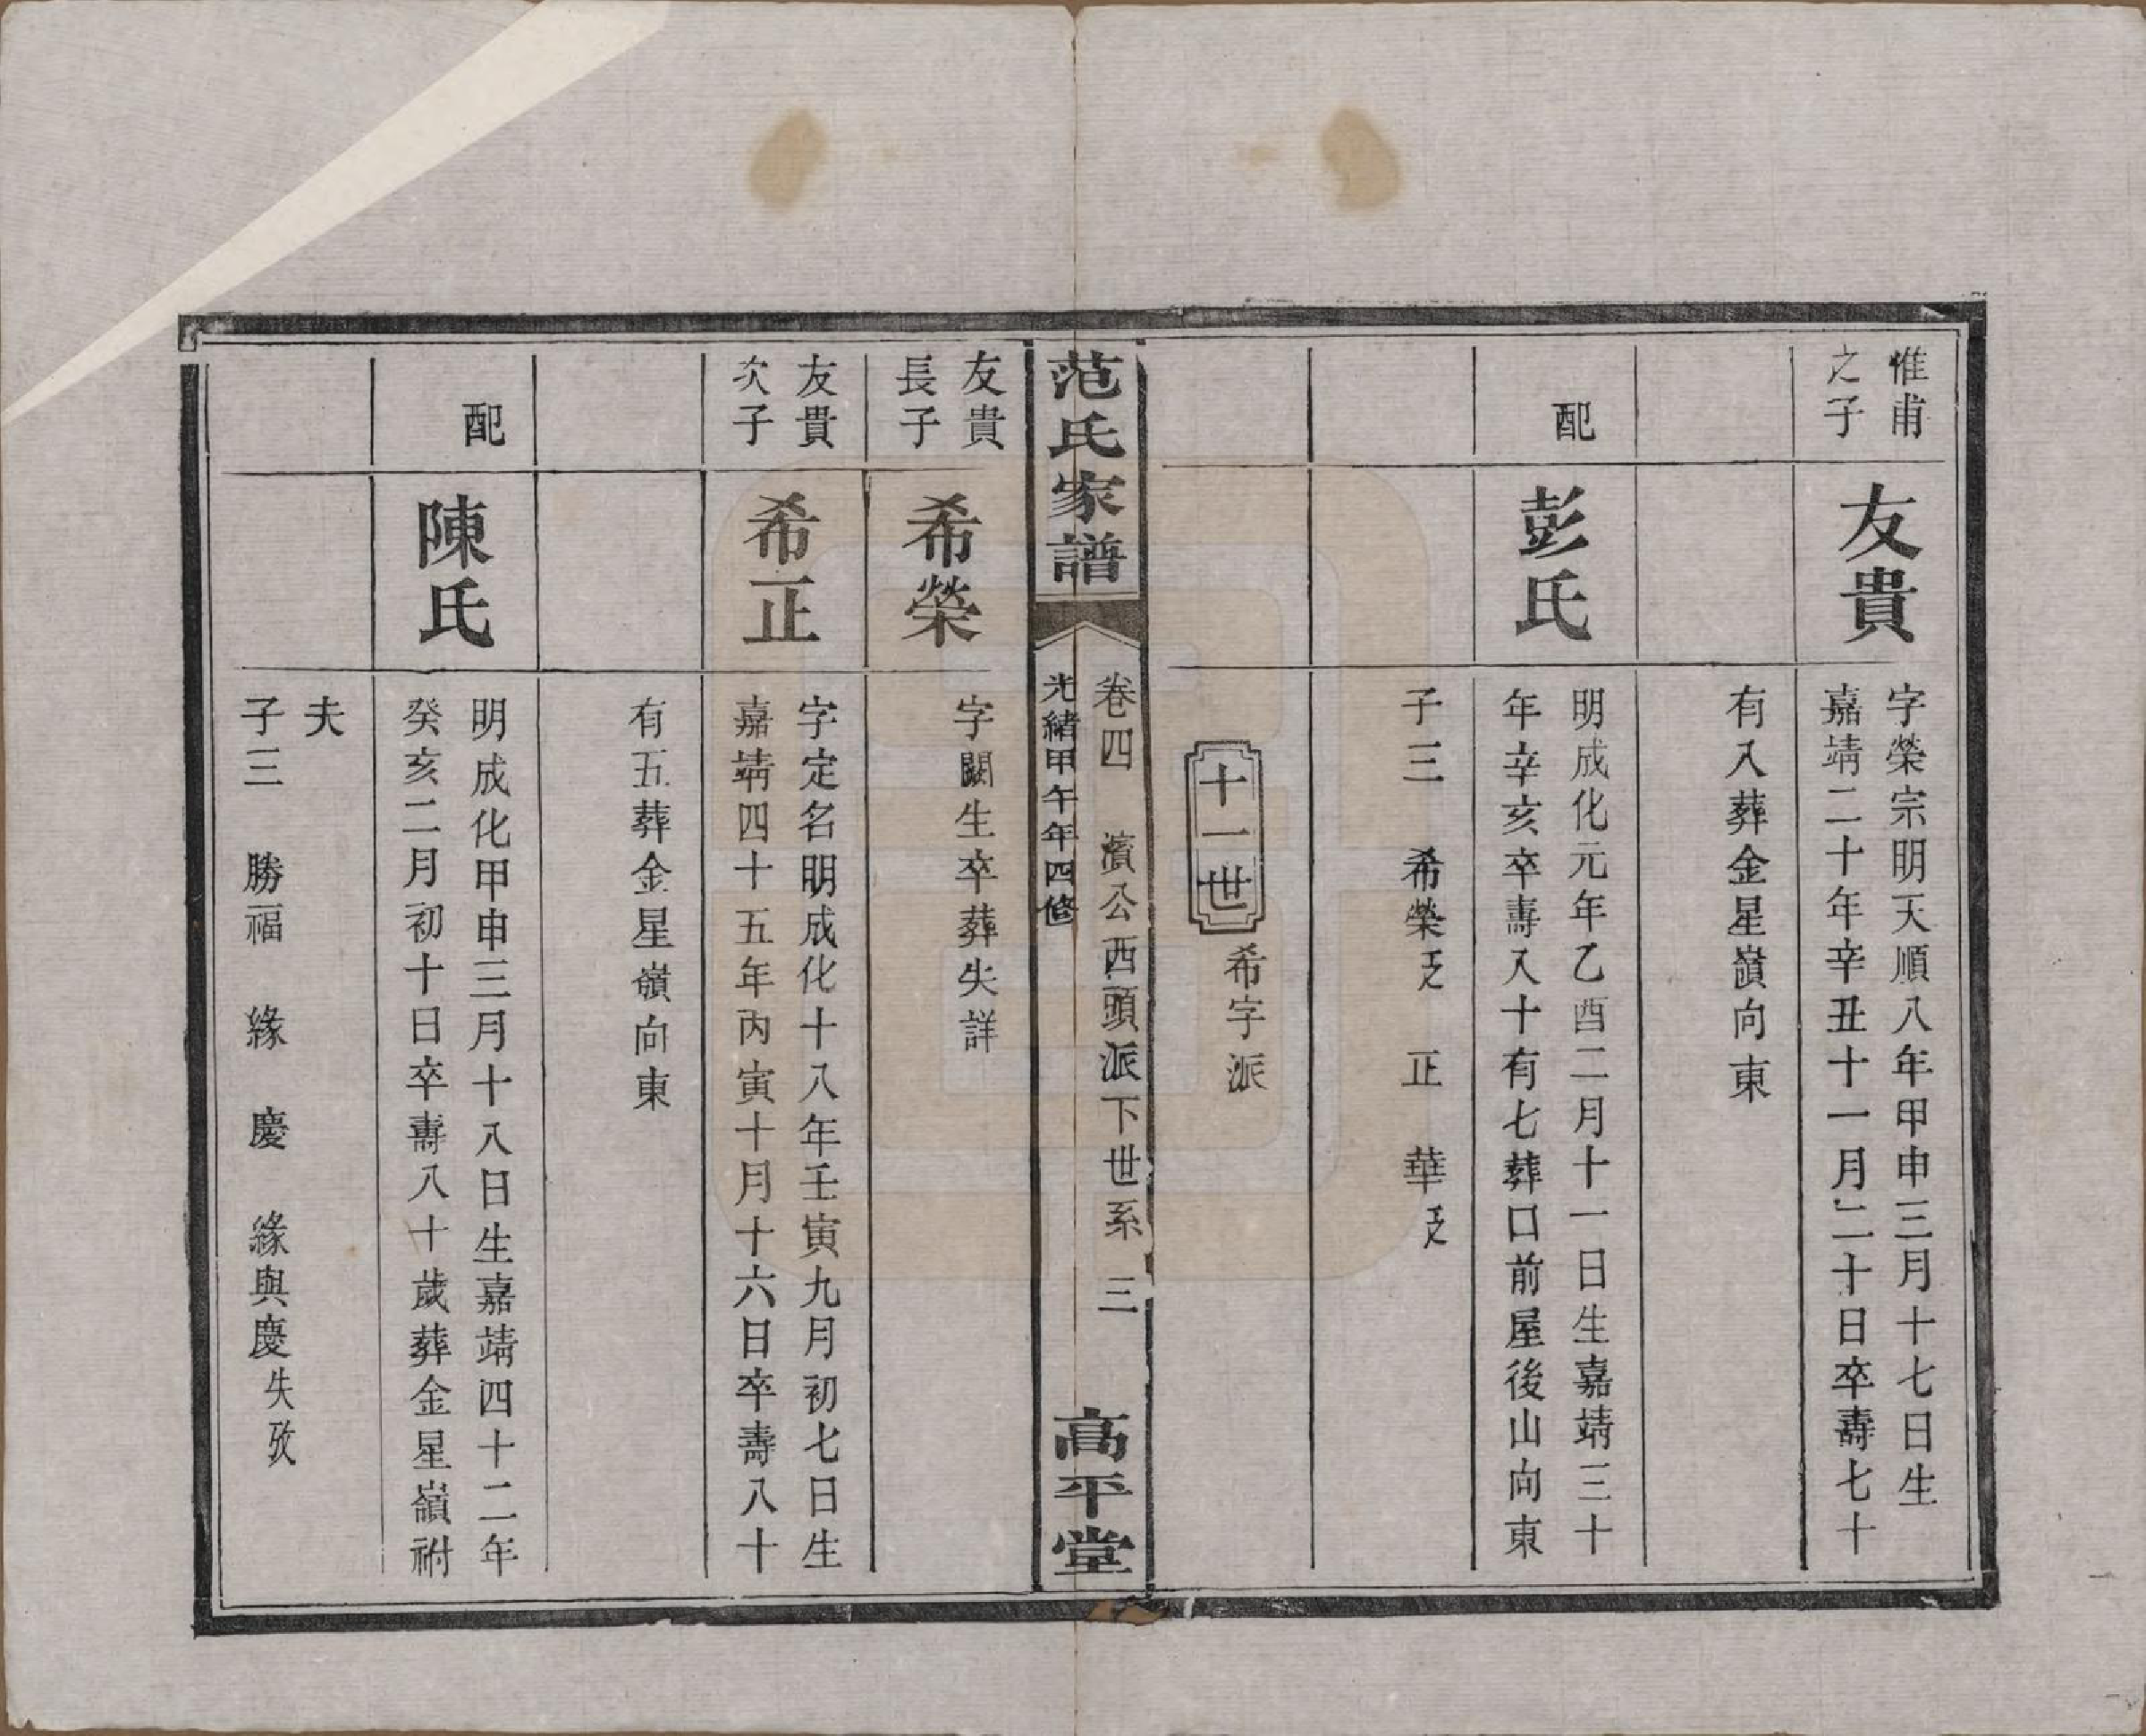 惟甫
之子
友貴
字榮宗明天順八年甲申三月十七日生
嘉靖二十年辛丑十一月二十日卒壽七十
有八葬金星嶺向東
配
彭氏
明成化元年乙酉二月十一日生嘉靖三十
年辛亥卒壽八十有七葬口前屋後山向東
子三 希榮 正 華
十一世
希字派
范氏家譜
卷四 濱公西頭派下世系 三
光緒甲午年四修
高平堂
友貴
長子
希榮
字闕生卒葬失詳
友貴
次子
希正
字定名明成化十八年壬寅九月初七日生
嘉靖四十五年丙寅十月十六日卒壽八十
有五葬金星嶺向東
配
陳氏
明成化甲申三月十八日生嘉靖四十二年
癸亥二月初十日卒壽八十歲葬金星嶺祔
夫
子三 勝福 緣 慶 緣與慶失攷